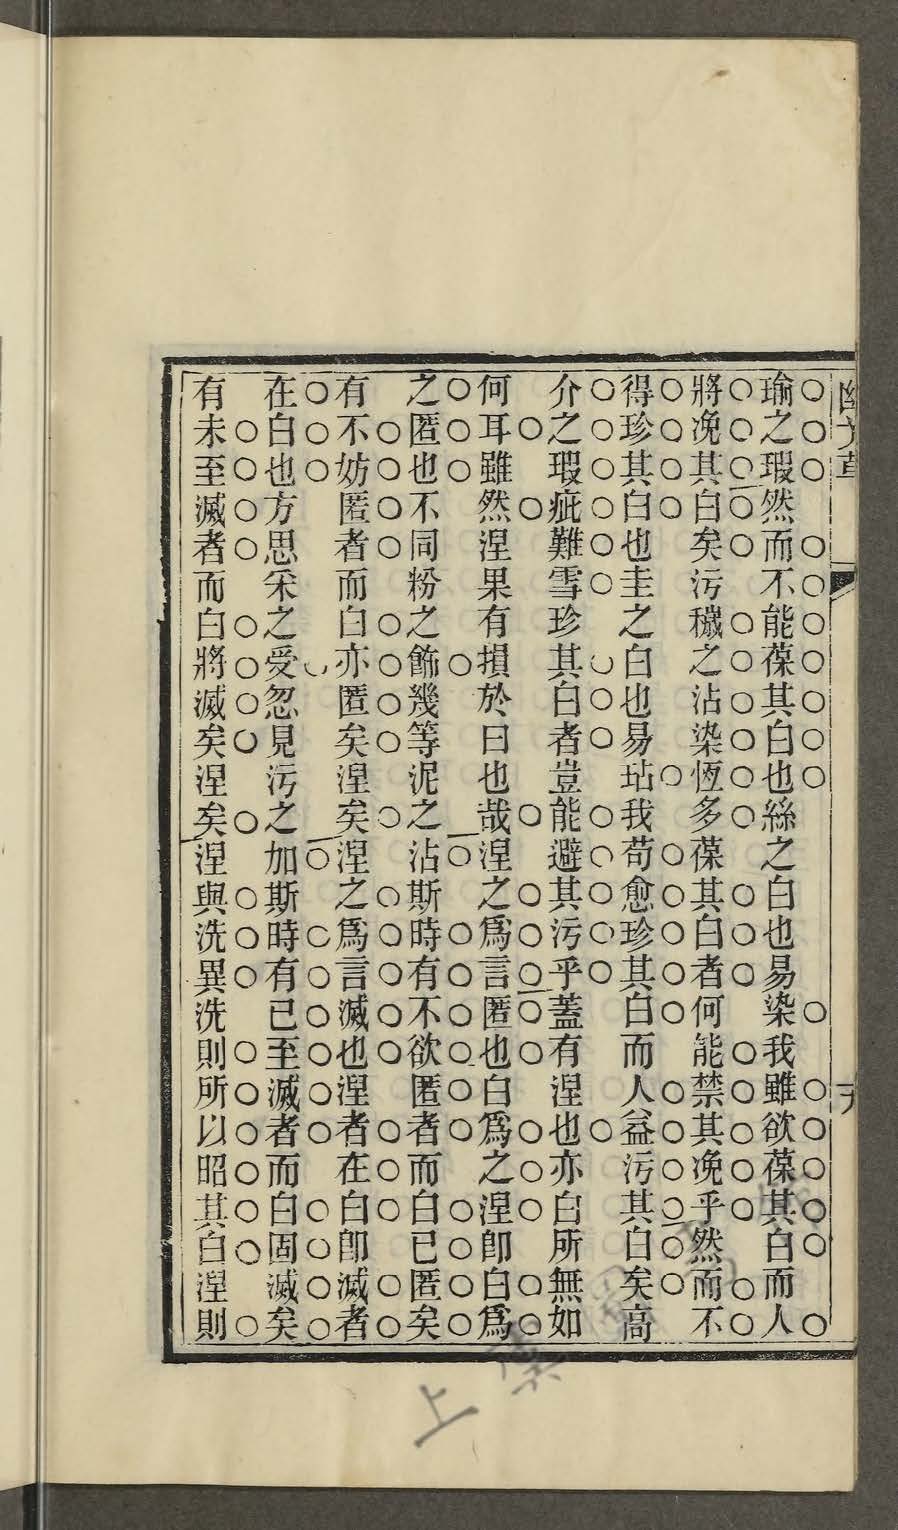 瑜之瑕然而不能葆其白也絲之白也易染我雖欲葆其白而人
將浼其白矣污穢之沾染恆多葆其白者何能禁其浼乎然而不
得珍其白也圭之白也易玷我苟愈珍其白而人益污其白矣高
介之瑕疵難雪珍其白者豈能避其污乎蓋有涅也亦白所無如
何耳雖然涅果有損於白也哉涅之爲言匿也白爲之涅卽白爲
之匿也不同粉之飾幾等泥之沾斯時有不欲匿者而白已匿矣
有不妨匿者而白亦匿矣涅矣涅之爲言滅也涅者在白卽滅者
在白也方思采之受忽見污之加斯時有已至滅者而白固滅矣
有未至滅者而白將滅矣涅矣涅與洗異洗則所以昭其白涅則